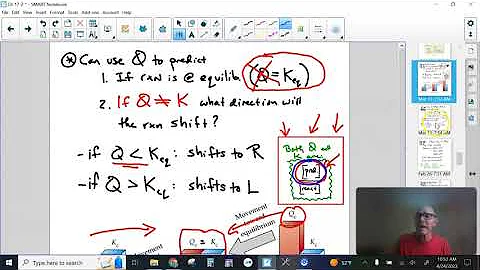 Ch 17-2 * - SMART Notebook
File Edit View Insert Format Tools Add-ons Help
⊛ Can use Q to predict
1. If rxn is @ equilib. (Q = Keq)
2. If Q ≠ K what direction will
the rxn shift?
- if Q < Keq: shifts to R
- if Q > Keq: shifts to L
Both Q and
K are
[prod]
[react]
Movement
equilibrium
Q
Q = K
K
K
Type here to search
52°F
10:52 AM
4/24/2023